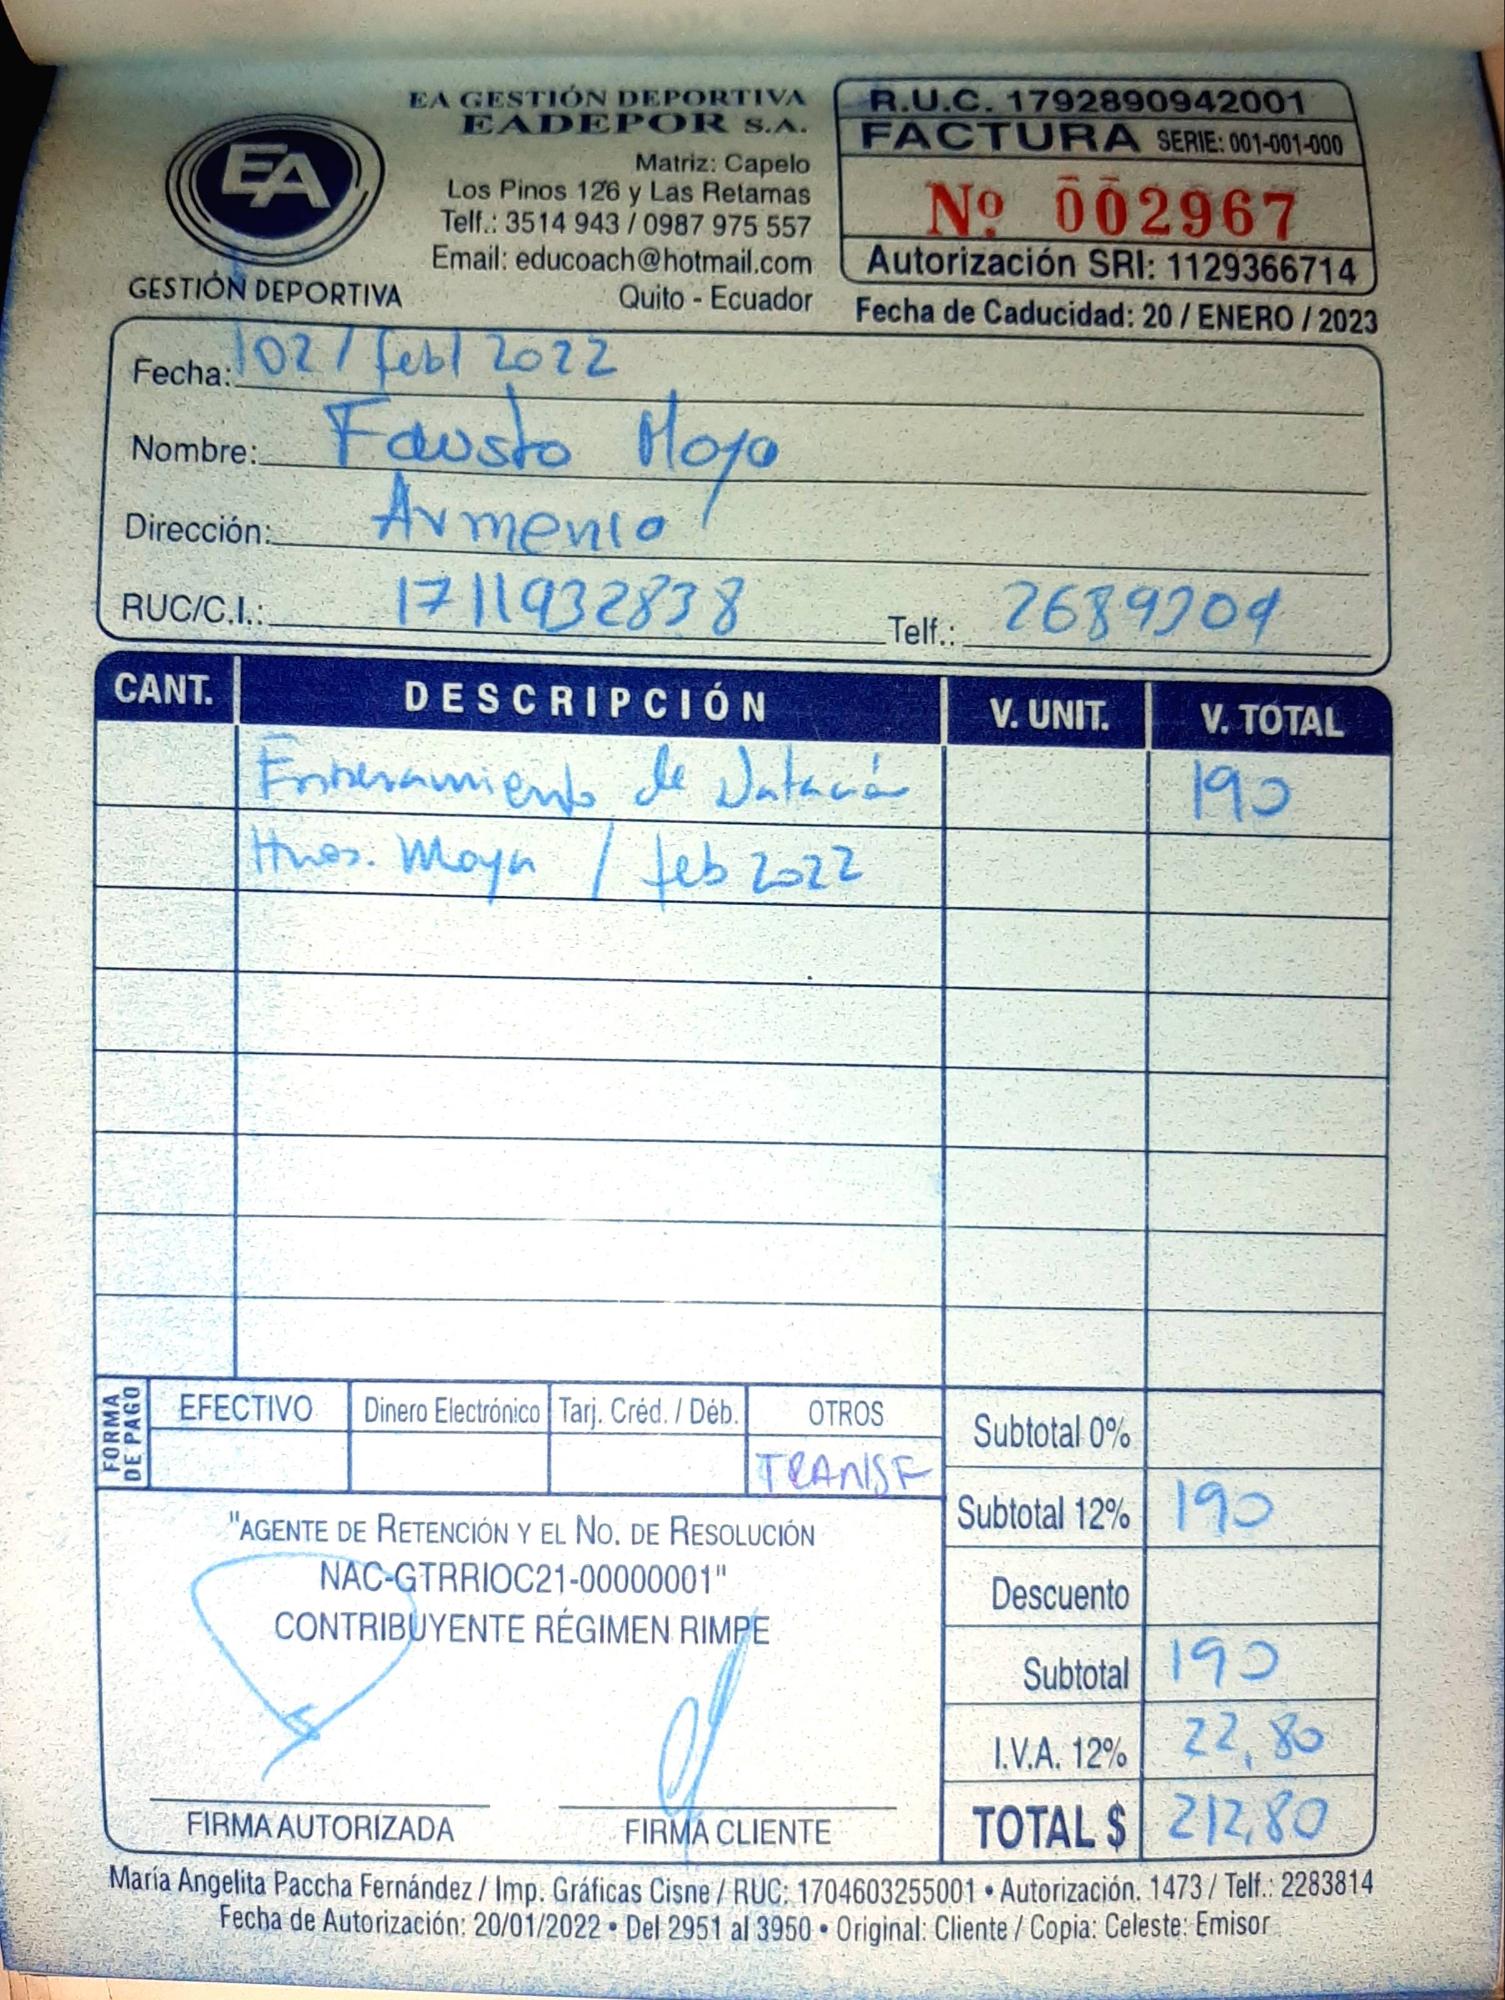 EA GESTIÓN DEPORTIVA
EADEPOR S.A.
Matriz: Capelo
Los Pinos 126 y Las Retamas
Telf.: 3514 943 / 0987 975 557
Email: educoach@hotmail.com
Quito - Ecuador
EA
GESTIÓN DEPORTIVA
R.U.C. 1792890942001
FACTURA SERIE: 001-001-000
Nº 002967
Autorización SRI: 1129366714
Fecha de Caducidad: 20 / ENERO / 2023
Fecha: 02 / feb / 2022
Nombre: Fausto Moya
Dirección: Armenia
RUC/C.I.: 1711932838 Telf.: 2689204
CANT. DESCRIPCIÓN V. UNIT. V. TOTAL
Entrenamiento de Natación 190
Hnos. Moya / feb 2022
FORMA DE PAGO EFECTIVO Dinero Electrónico Tarj. Créd. / Déb. OTROS
TRANSF
Subtotal 0%
Subtotal 12% 190
Descuento
Subtotal 190
I.V.A. 12% 22,80
TOTAL $ 212,80
"AGENTE DE RETENCIÓN Y EL NO. DE RESOLUCIÓN
NAC-GTRRIOC21-00000001"
CONTRIBUYENTE RÉGIMEN RIMPE
FIRMA AUTORIZADA FIRMA CLIENTE
María Angelita Paccha Fernández / Imp. Gráficas Cisne / RUC: 1704603255001 • Autorización. 1473 / Telf.: 2283814
Fecha de Autorización: 20/01/2022 • Del 2951 al 3950 • Original: Cliente / Copia: Celeste: Emisor